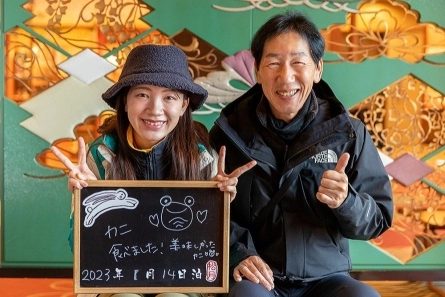 カニ
食べました！美味しかった
2023年 1月14日 泊
THE
NORTH
FACE